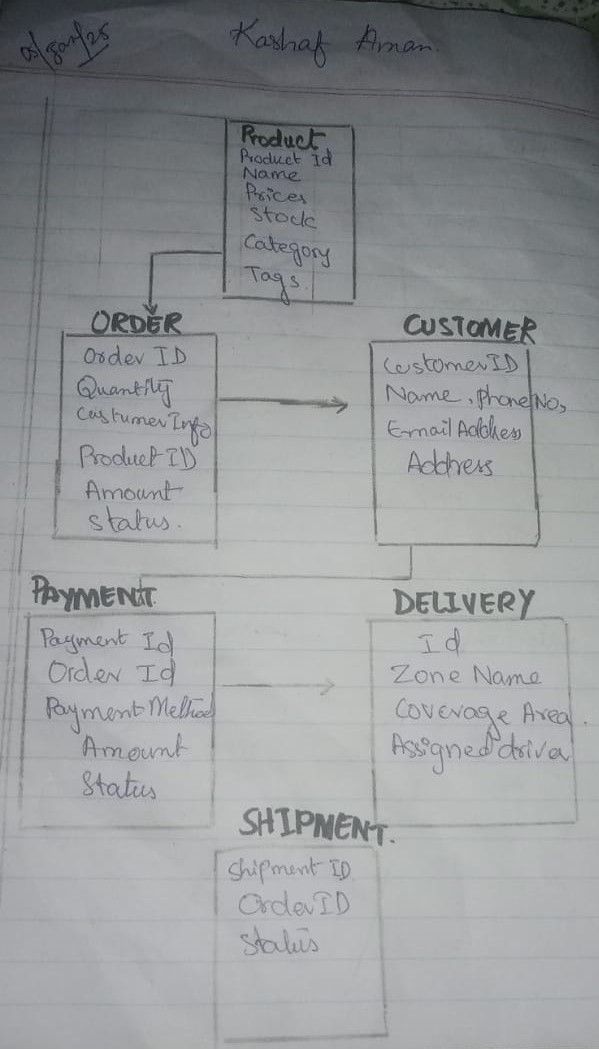 05/Jan/25
Kashaf Aman.
Product
Product Id
Name
Prices
Stock
Category
Tags.
ORDER
Order ID
Quantity
Custumer Info
Product ID
Amount
Status.
CUSTOMER
Customer ID
Name, Phone No,
Email Address
Address
PAYMENT
Payment Id
Order Id
Payment Method
Amount
Status
DELIVERY
Id
Zone Name
Coverage Area.
Assigned driver
SHIPMENT.
Shipment ID
Order ID
Status